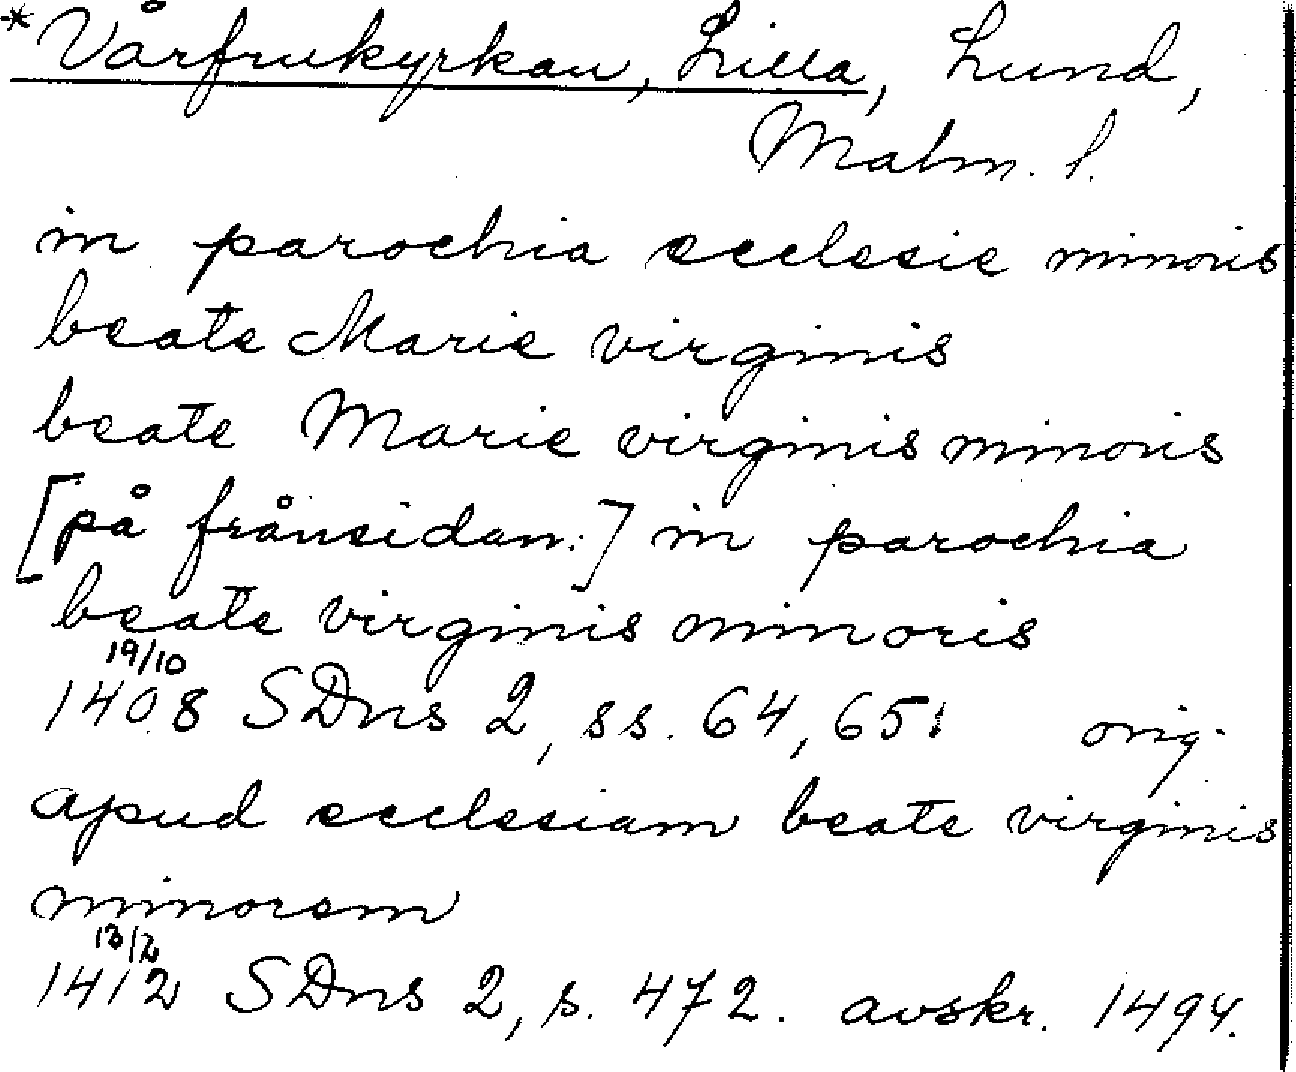 *Vårfrukyrkan, Lilla, Lund,
Malm. l.
in parochia ecclesie minoris
beate Marie virginis
beate Marie virginis minoris
[på frånsidan:] in parochia
beate virginis minoris
19/10
1408 SDns 2, ss. 64, 651 orig.
apud ecclesiam beate virginis
minorem
13/2
1412 SDns 2, s. 472. avskr. 1494.